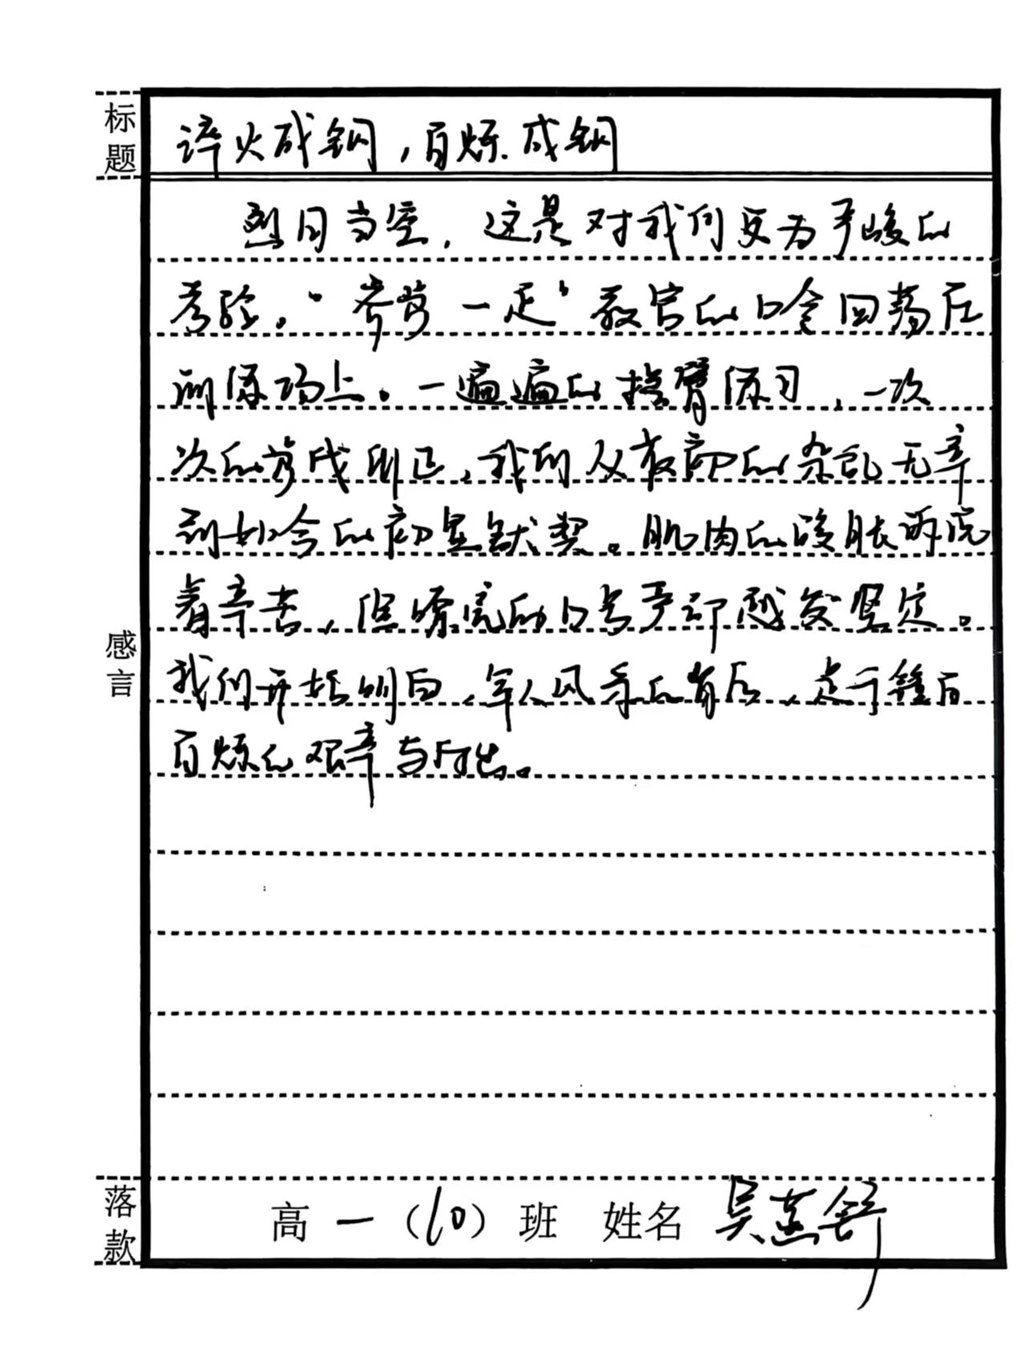 标题
淬火成钢，百炼成钢
烈日当空，这是对我们更为严峻的
考验。“齐步一走”教官的口令回荡在
训练场上。一遍遍的摆臂练习，一次
次的步伐纠正，我们从最初的杂乱无章
到如今的初显默契。肌肉的酸胀诉说
着辛苦，但嘹亮的口号声却越发坚定。
我们开始明白，军人风采的背后，是千锤百
百炼的艰辛与付出。
感言
落款
高一（10）班 姓名 吴燕舒